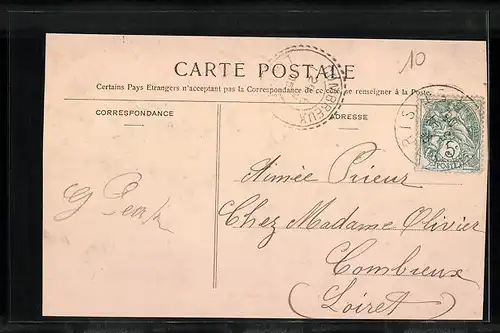 10
CARTE POSTALE
Certains Pays Etrangers n'acceptant pas la Correspondance de ce côté, se renseigner à la Poste
CORRESPONDANCE
ADRESSE
Aimée Prieur
Chez Madame Olivier
Combreux
(Loiret)
5c
POSTES